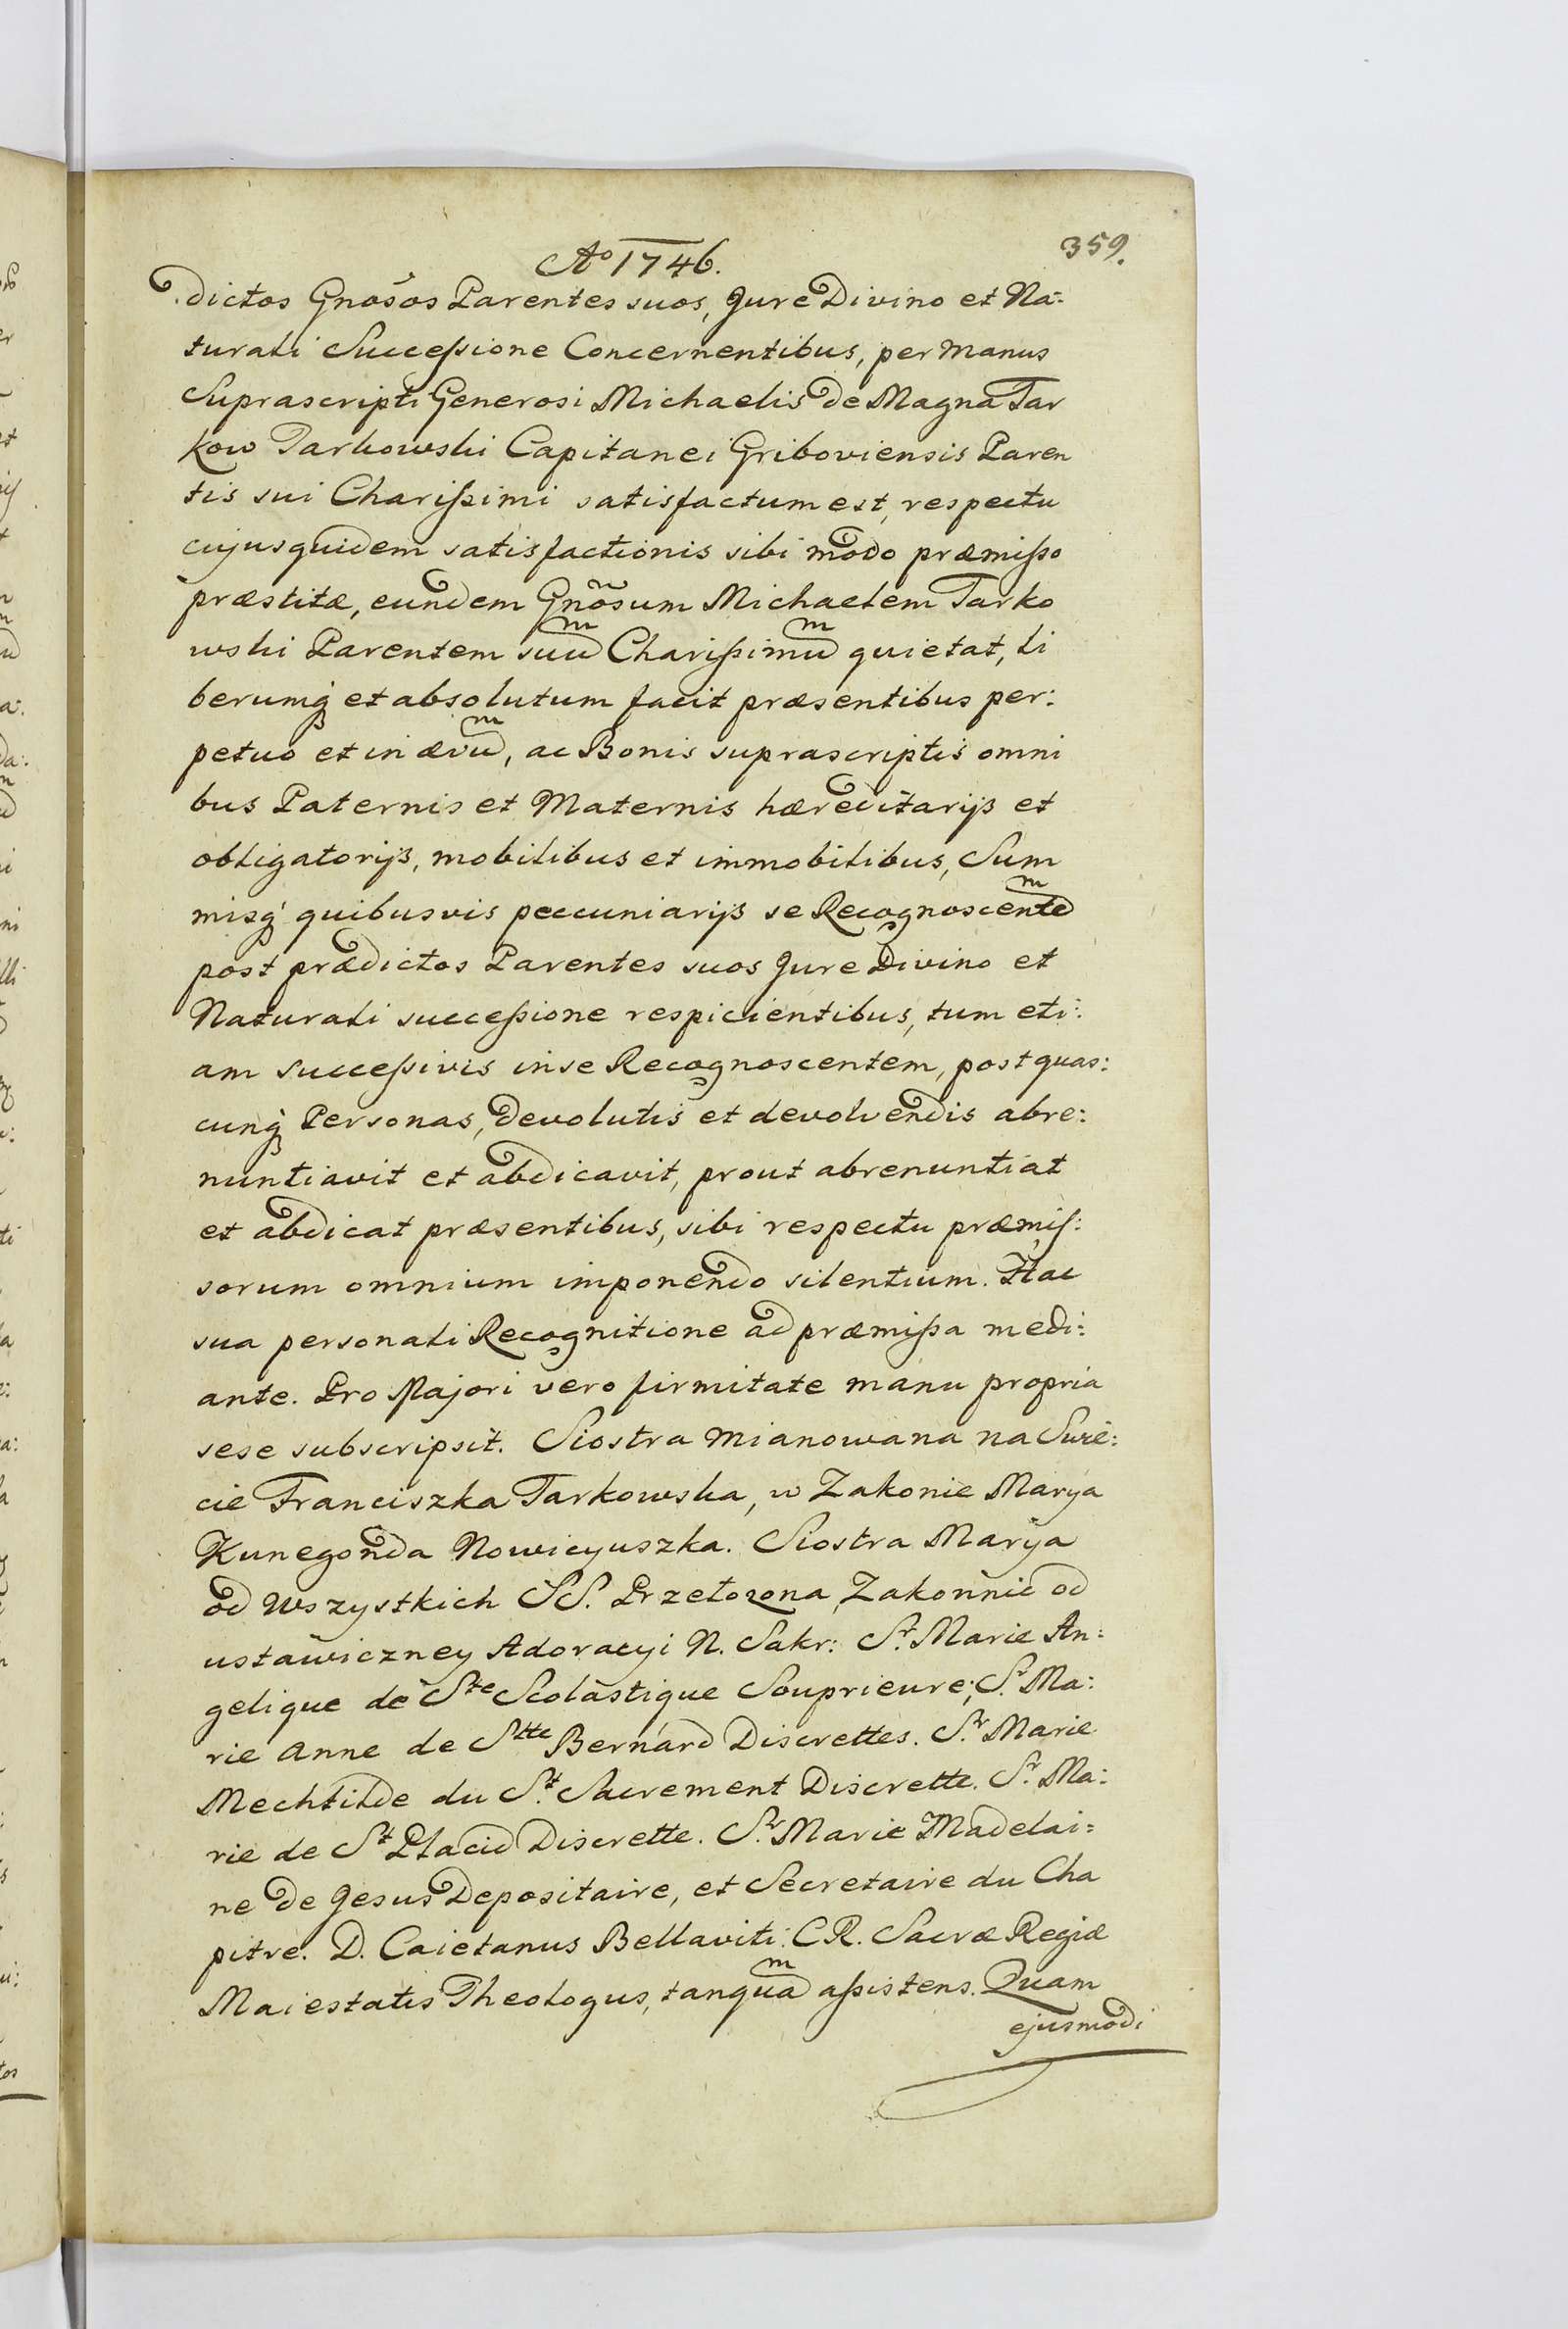 Aº 1746.
359.
dictos Gnosos Parentes suos, Jure Divino et Na=
turali Successione Concernentibus, per manus
Suprascripti Generosi Michaelis de Magna Tar
kow Tarkowski Capitanei Griboviensis Paren
tis sui Charissimi satisfactum est, respectu
cujusquidem satisfactionis sibi modo præmisso
præstitæ, eundem Gnõsum Michaelem Tarko
wski Parentem suũ Charissimũ quietat, li
berumq́ et absolutum facit præsentibus per:
petuo et in ævũ, ac Bonis suprascriptis omni
bus Paternis et Maternis hæreditarijs et
obligatorijs, mobilibus et immobilibus, Sum
misq́ quibusvis peccuniarijs se Recognoscentẽ
post prædictos Parentes suos Jure Divino et
Naturali successione respicientibus, tum eti:
am successivis in se Recognoscentem, post quas:
cunq́ Personas, devolutis et devolvendis abre:
nuntiavit et abdicavit, prout abrenuntiat
et abdicat præsentibus, sibi respectu præmis:
sorum omnium imponendo silentium. Hac
sua personali Recognitione ad præmissa medi:
ante. Pro Majori vero firmitate manu propria
sese subscripsit. Siostra mianowana na Swie:
cie Franciszka Tarkowska, w Zakonie Marya
Kunegonda Nowicyuszka. Siostra Marya
od Wszystkich SS. Przełozona, Zakonnic od
ustawiczney Adoracyi N. Sakr: Sr. Marie An=
gelique de Ste Scolastique Souprieure; Sr. Ma:
rie Anne de Stte Bernard Discrettes. Sr. Marie
Mechtilde du St. Sacrement Discrette. Sr. Ma:
rie de St Placid Discrette. Sr. Marie Madelai=
ne de Jesus Depositaire, et Secretaire du Cha
pitre. D. Caietanus Bellaviti C.R. Sacræ Regiæ
Maiestatis Theologus, tanquã assistens. Quam
ejusmodi